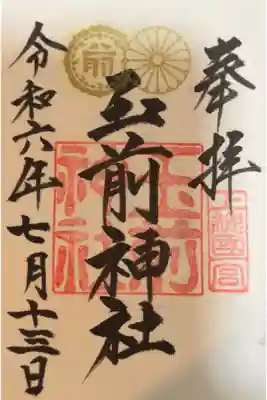 奉拝
上総国一宮
玉前神社
玉前神社
令和六年七月十三日